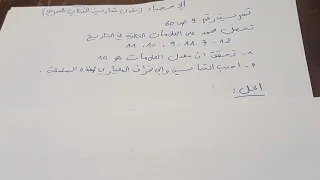 الإحصاء (حلول تمارين الكتاب المدرسي)
تمرين رقم 9 ص 60
تحصل محمد على العلامات التالية في التاريخ
12 . 7 . 11 . 9 . 10 . 11
1- تحقق أن معدل العلامات هو 10
2- احسب التباين والانحراف المعياري لهذه السلسلة .
الحل :